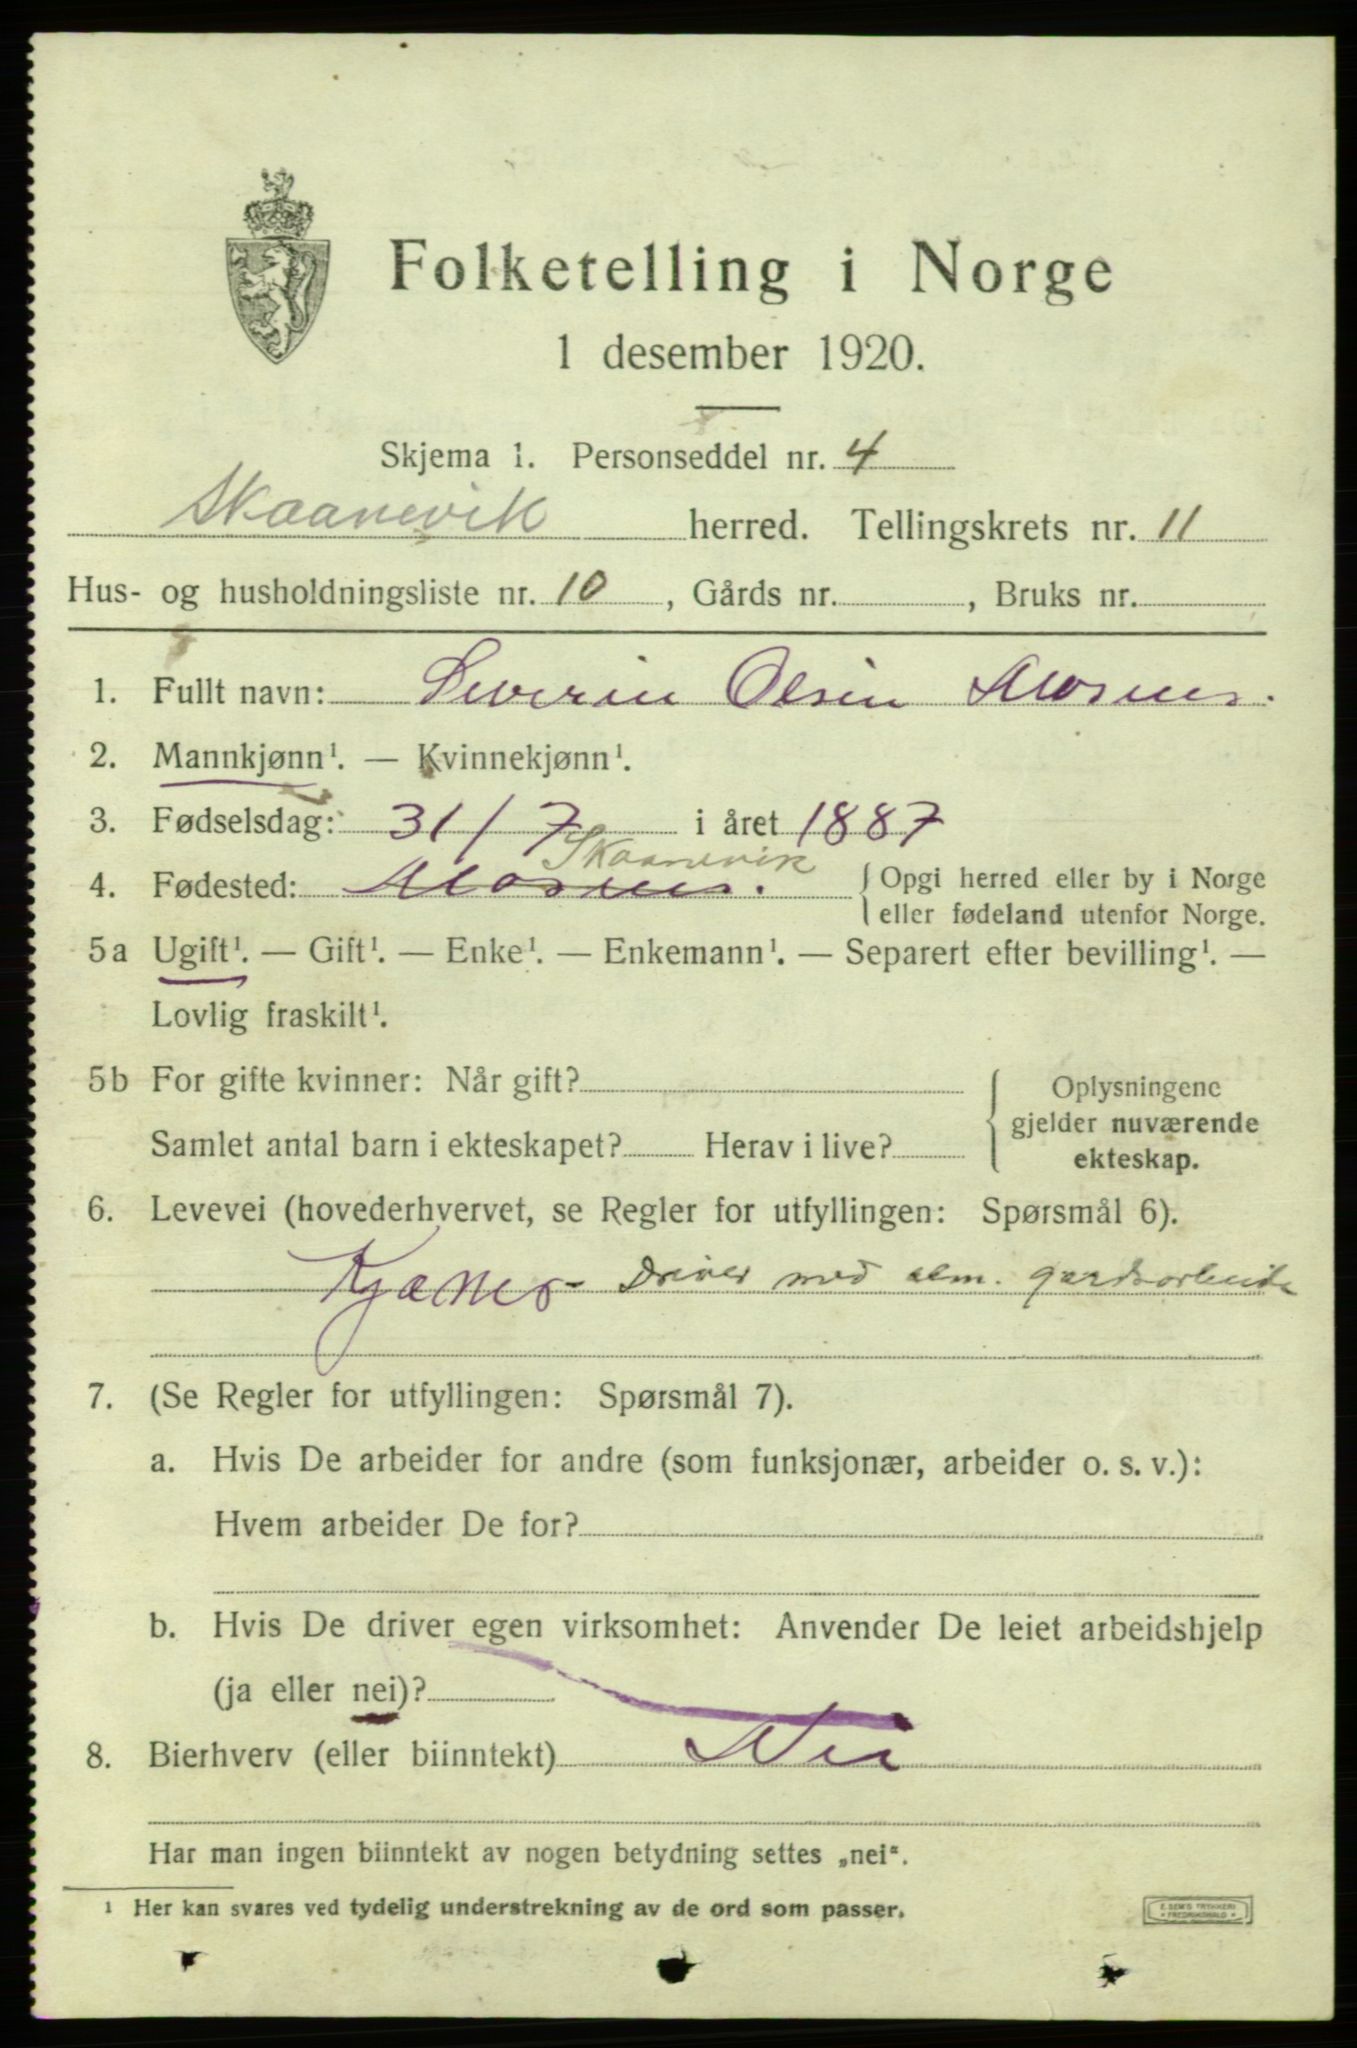 Folketelling i Norge
1 desember 1920.
Skjema 1. Personseddel nr. 4
Skaanevik herred. Tellingskrets nr. 11
Hus- og husholdningsliste nr. 10, Gårds nr. , Bruks nr.
1. Fullt navn: Severin Olsen Mosnes.
2. Mannkjønn¹. — Kvinnekjønn¹.
3. Fødselsdag: 31/7 i året 1887
Skaanevik
4. Fødested: Mosnes. { Opgi herred eller by i Norge
eller fødeland utenfor Norge.
5a Ugift¹. — Gift¹. — Enke¹. — Enkemann¹. — Separert efter bevilling¹. —
Lovlig fraskilt¹.
5b For gifte kvinner: Når gift? { Oplysningene
gjelder nuværende
Samlet antal barn i ekteskapet? Herav i live? ekteskap.
6. Levevei (hovederhvervet, se Regler for utfyllingen: Spørsmål 6).
Driver med alm. gardsarbeide
7. (Se Regler for utfyllingen: Spørsmål 7).
a. Hvis De arbeider for andre (som funksjonær, arbeider o. s. v.):
Hvem arbeider De for?
b. Hvis De driver egen virksomhet: Anvender De leiet arbeidshjelp
(ja eller nei)?
8. Bierhverv (eller biinntekt) Nei
Har man ingen biinntekt av nogen betydning settes „nei“.
¹ Her kan svares ved tydelig understrekning av de ord som passer.
E. SEM'S TRYKKERI
FREDRIKSHALD